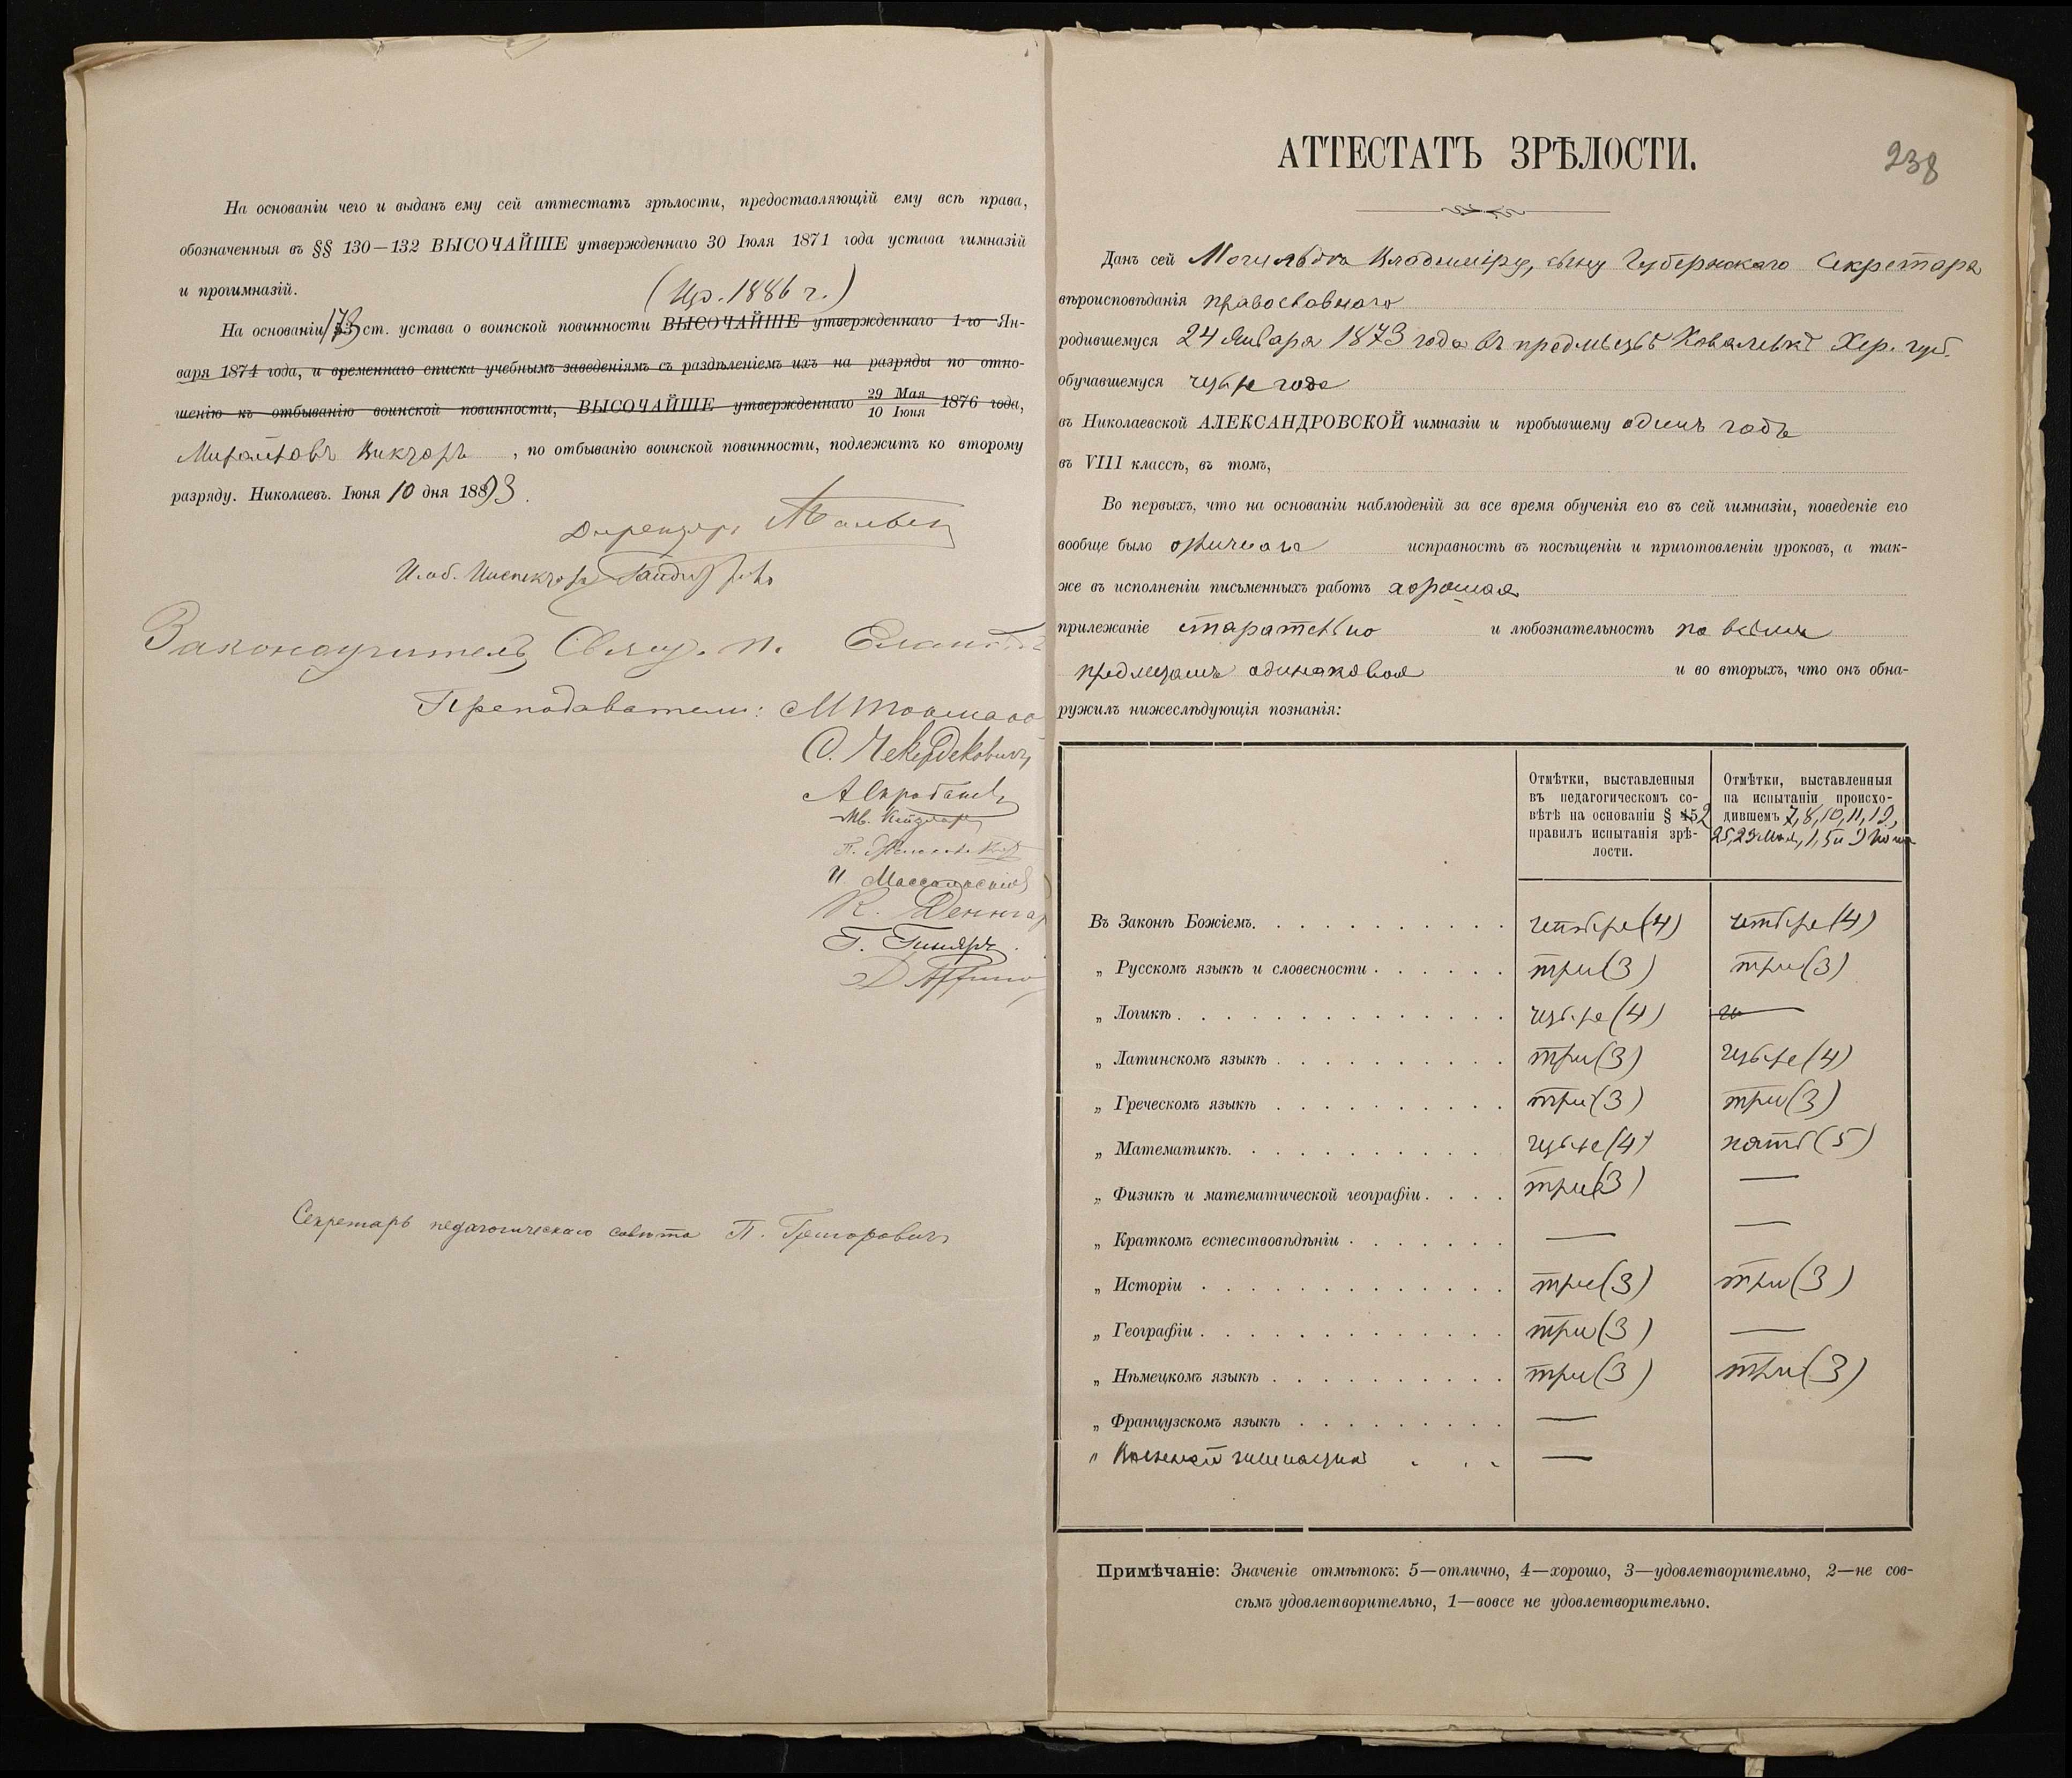 На основаніи чего и выданъ ему сей аттестатъ зрѣлости, предоставляющій ему всѣ права,
обозначенныя въ §§ 130—132 ВЫСОЧАЙШЕ утвержденнаго 30 Іюля 1871 года устава гимназій
и прогимназій.
(Из. 1886 г.)
На основаніи 173 ст. устава о воинской повинности ВЫСОЧАЙШЕ утвержденнаго 1-го Ян-
варя 1874 года, и временнаго списка учебнымъ заведеніямъ съ раздѣленіемъ ихъ на разряды по отно-
шенію къ отбыванію воинской повинности, ВЫСОЧАЙШЕ утвержденнаго 29 Мая / 10 Іюня 1876 года,
Викторъ, по отбыванію воинской повинности, подлежитъ ко второму
разряду. Николаевъ. Іюня 10 дня 1893.
Директоръ
И. об. Инспектора
Законоучитель Свящ. П.
Преподаватели: М
О. Чекердековичъ
А
Ив.
П.
И. Массальскій
К.
Г.
Д
Секретарь педагогическаго совѣта П. Григоровичъ
АТТЕСТАТЪ ЗРѢЛОСТИ.
238
Данъ сей Владиміру, сыну Губернскаго Секретаря
вѣроисповѣданія православнаго
родившемуся 24 Января 1873 года въ предмѣстьѣ Ковалевкѣ Хер. губ.
обучавшемуся четыре года
въ Николаевской АЛЕКСАНДРОВСКОЙ гимназіи и пробывшему одинъ годъ
въ VIII классѣ, въ томъ,
Во первыхъ, что на основаніи наблюденій за все время обученія его въ сей гимназіи, поведеніе его
вообще было отличное исправность въ посѣщеніи и приготовленіи уроковъ, а так-
же въ исполненіи письменныхъ работъ хорошая
прилежаніе старательно и любознательность по всѣмъ
предметамъ одинаковая и во вторыхъ, что онъ обна-
ружилъ нижеслѣдующія познанія:
Отмѣтки, выставленныя
въ педагогическомъ со-
вѣтѣ на основаніи § 52
правилъ испытанія зрѣ-
лости.
Отмѣтки, выставленныя
на испытаніи происхо-
дившемъ 7, 8, 10, 11, 12,
25, 29 Мая, 1, 5 и 9 Іюня
Въ Законѣ Божіемъ. четыре (4) четыре (4)
„ Русскомъ языкѣ и словесности три (3) три (3)
„ Логикѣ четыре (4) —
„ Латинскомъ языкѣ три (3) четыре (4)
„ Греческомъ языкѣ три (3) три (3)
„ Математикѣ. четыре (4) пять (5)
„ Физикѣ и математической географіи три (3) —
„ Краткомъ естествовѣдѣніи — —
„ Исторіи три (3) три (3)
„ Географіи три (3) —
„ Нѣмецкомъ языкѣ три (3) три (3)
„ Французскомъ языкѣ —
„ Военной гимнастикѣ —
Примѣчаніе: Значеніе отмѣтокъ: 5—отлично, 4—хорошо, 3—удовлетворительно, 2—не сов-
сѣмъ удовлетворительно, 1—вовсе не удовлетворительно.